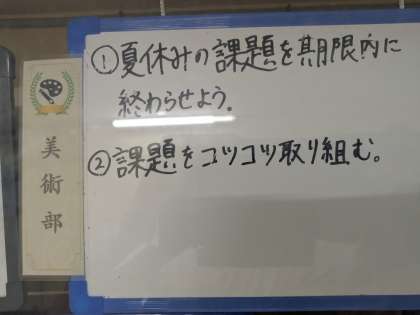 美術部
①夏休みの課題を期限内に
終わらせよう。
②課題をコツコツ取り組む。